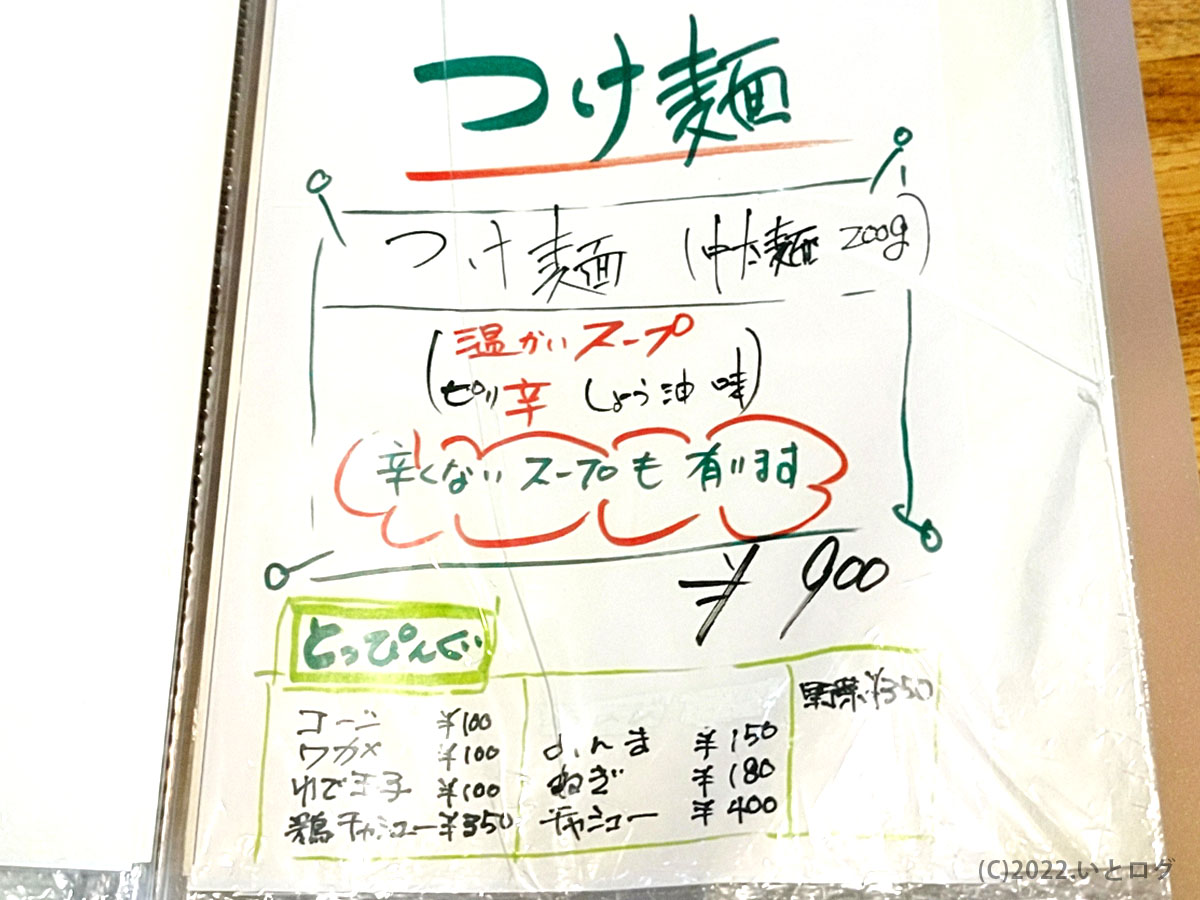 つけ麺
つけ麺 (中太麺 200g)
(温かいスープ
ピリ辛 しょう油味)
辛くないスープも有ります
¥900
とっぴんぐ
コーン ¥100
ワカメ ¥100
ゆで玉子 ¥100
鶏チャシュー ¥350
めんま ¥150
ねぎ ¥180
チャシュー ¥400
野菜 ¥350
(C)2022.いとログ